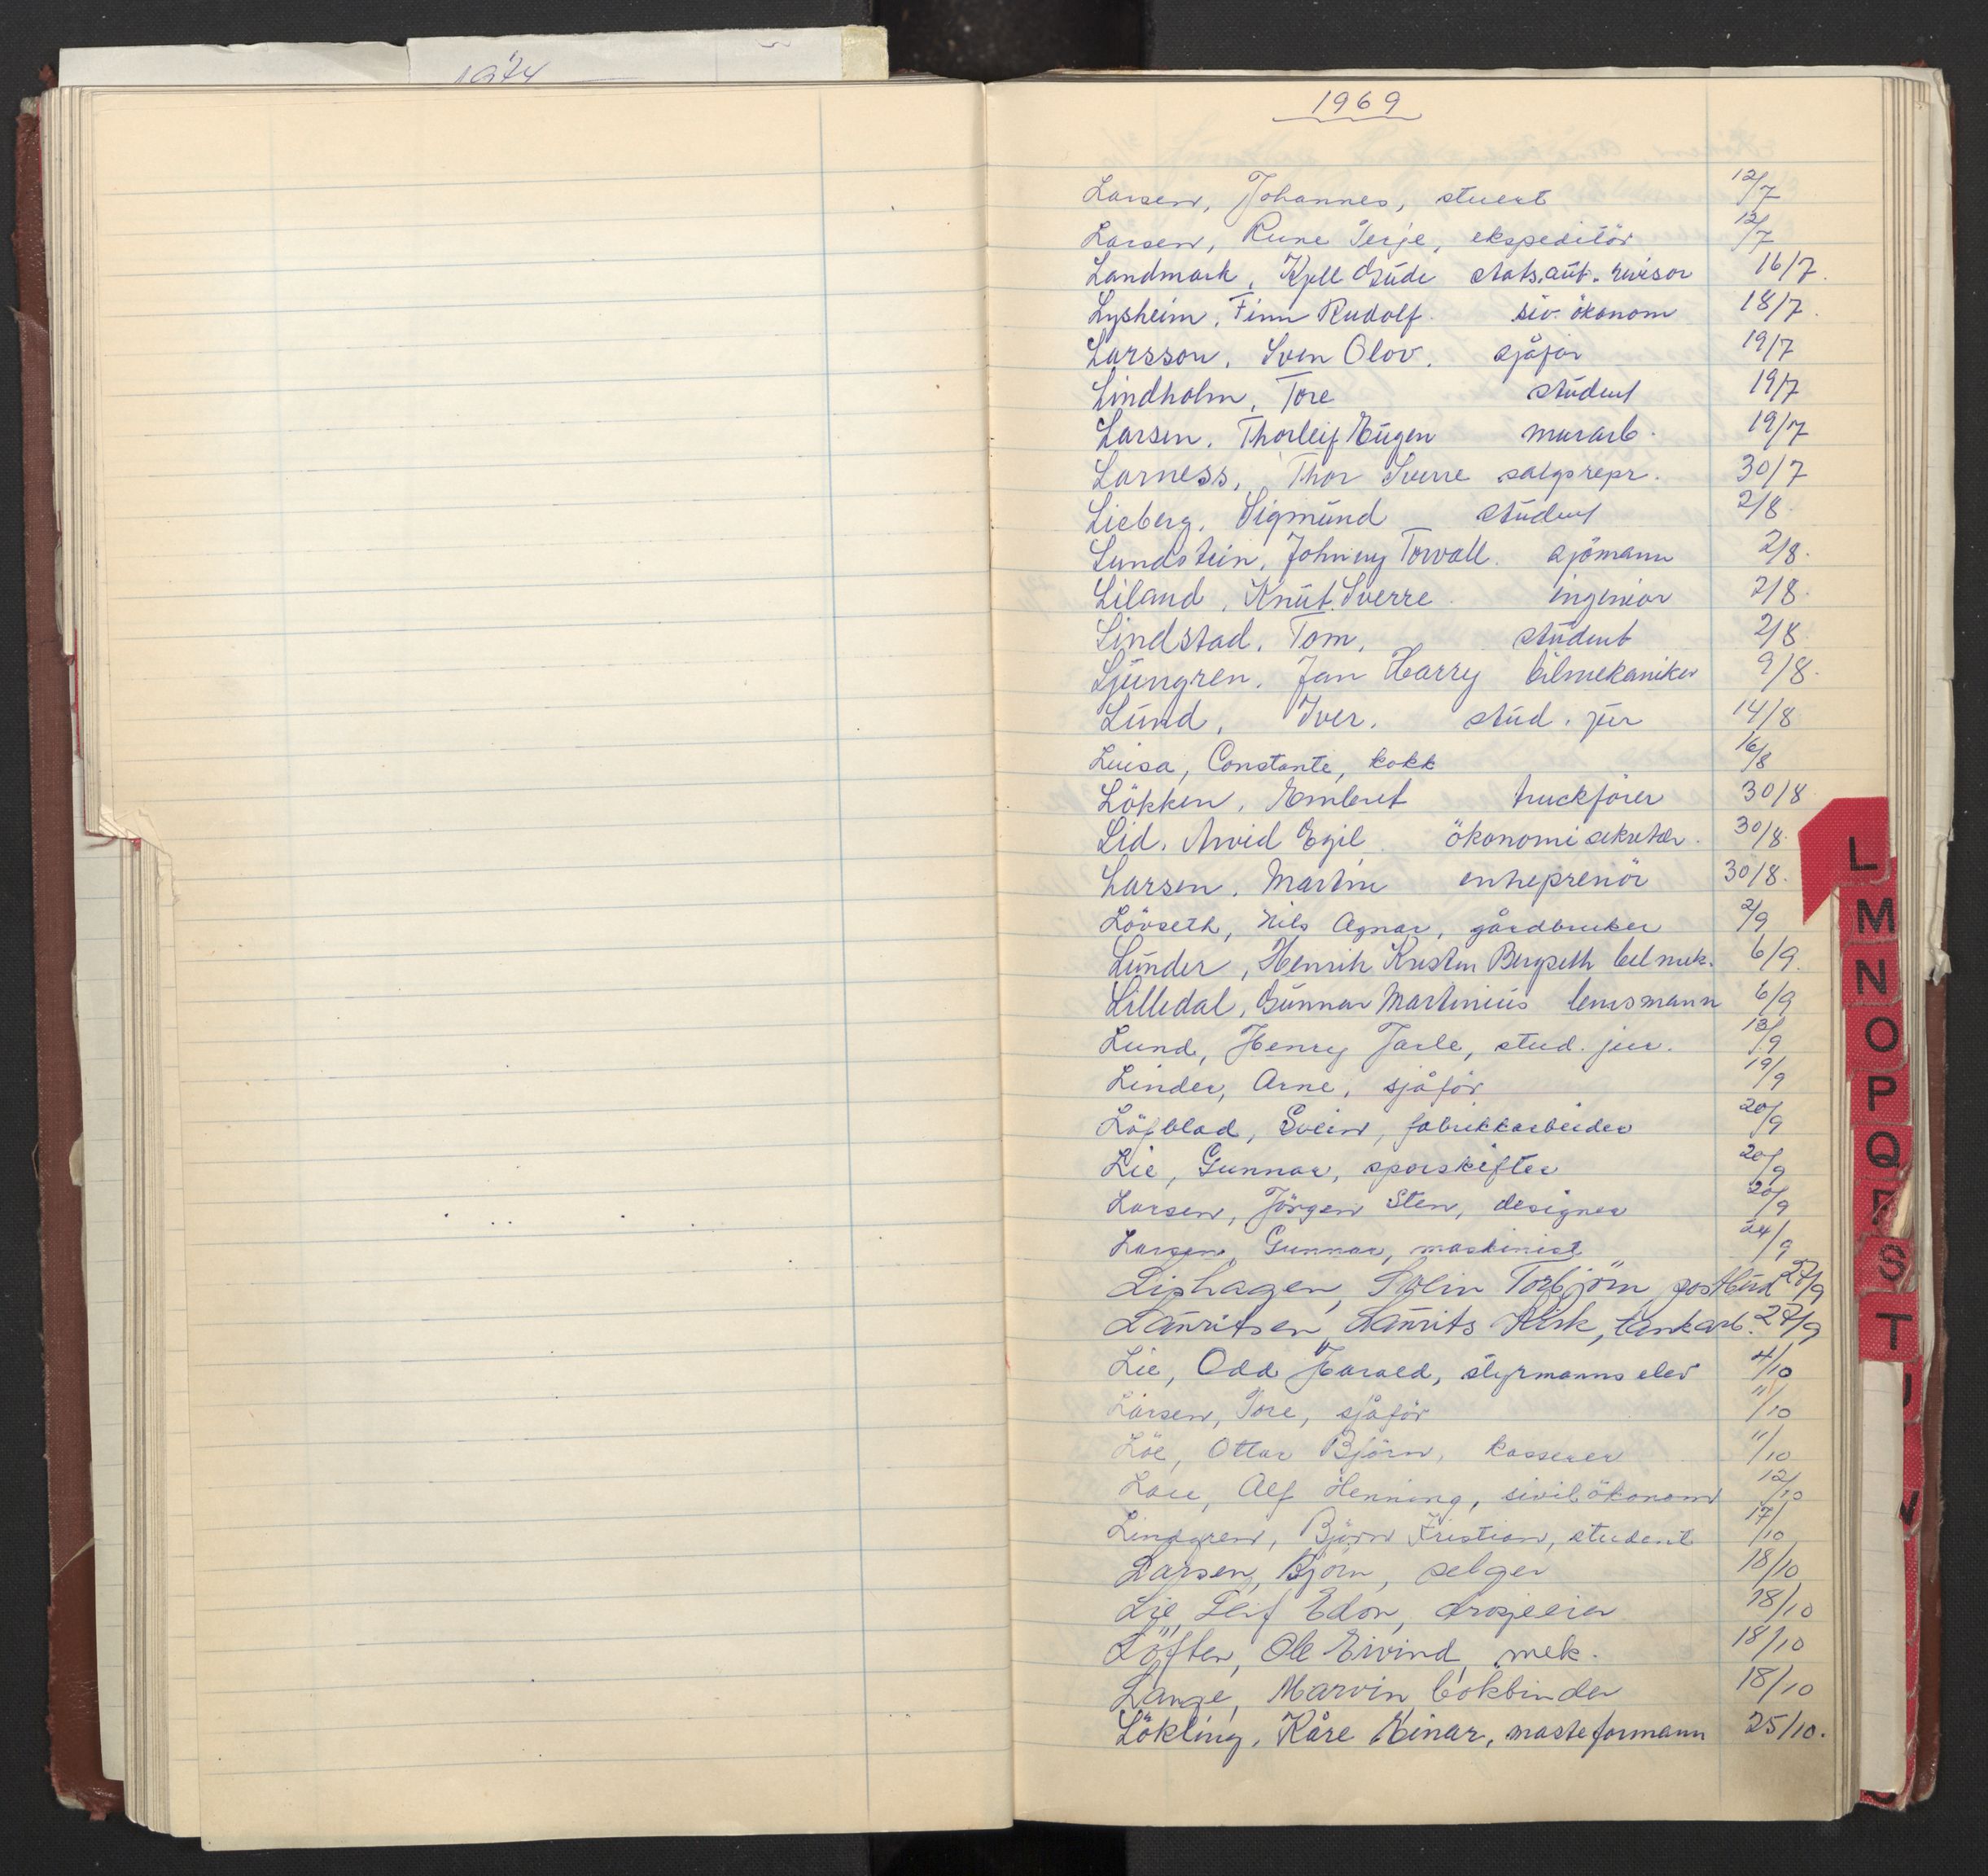 1974
1969
Larsen, Johannes, stuert 12/7
Larsen, Rune Terje, ekspeditör 12/7
Landmark, Kjell Gude stats.aut. revisor 16/7.
Lysheim, Finn Rudolf. siv. ökonom 18/7.
Larsson, Sven Olov. sjåför 19/7
Lindholm, Tore student 19/7
Larsen, Thorleif Eugen murarb. 19/7
Larness, Thor Sverre salgsrepr. 30/7
Lieberg, Sigmund student 2/8.
Lundstein, Johnny Torvall. sjömann 2/8.
Liland, Knut Sverre. ingeniör 2/8.
Lindstad, Tom, student 2/8.
Ljungren, Jan Harry bilmekaniker 9/8.
Lund, Iver. stud. jur 14/8
Luisa, Constante, kokk 16/8
Lökken, Embret truckförer 30/8
Lid, Arvid Egil. ökonomisekretær. 30/8.
Larsen, Martin entreprenör 30/8.
Lövseth, Nils Agnar, gårdbruker 2/9
Lunder, Henrik Kristen Bergseth bilmek. 6/9.
Lilledal, Gunnar Martinius lensmann 6/9
Lund, Henry Jarle, stud. jur. 13/9
Linder, Arne, sjåför 19/9
Löfblad, Svein, fabrikkarbeider 20/9
Lie, Gunnar, sporskifter 20/9
Larsen, Jörgen Sten, designer 20/9
Larsen, Gunnar, maskinist 24/9
Lishagen, Svein Torbjörn, postbud 27/9
Lauritsen, Laurits Kirk, tankarb. 27/9
Lie, Odd Harald, styrmannselev 4/10
Larsen, Tore, sjåför 11/10
Löe, Ottar Björn, kasserer 11/10
Lau, Alf Henning, sivilökonom 12/10
Lindgren, Björn Kristian, student 17/10
Larsen, Björn, selger 18/10
Lie, Leif Edon, drosjeeier 18/10
Löften, Ole Eivind, mek. 18/10
Lange, Marvin, bokbinder 18/10
Lökling, Kåre Einar, masteformann 25/10.
L
M
N
O
P
Q
R
S
T